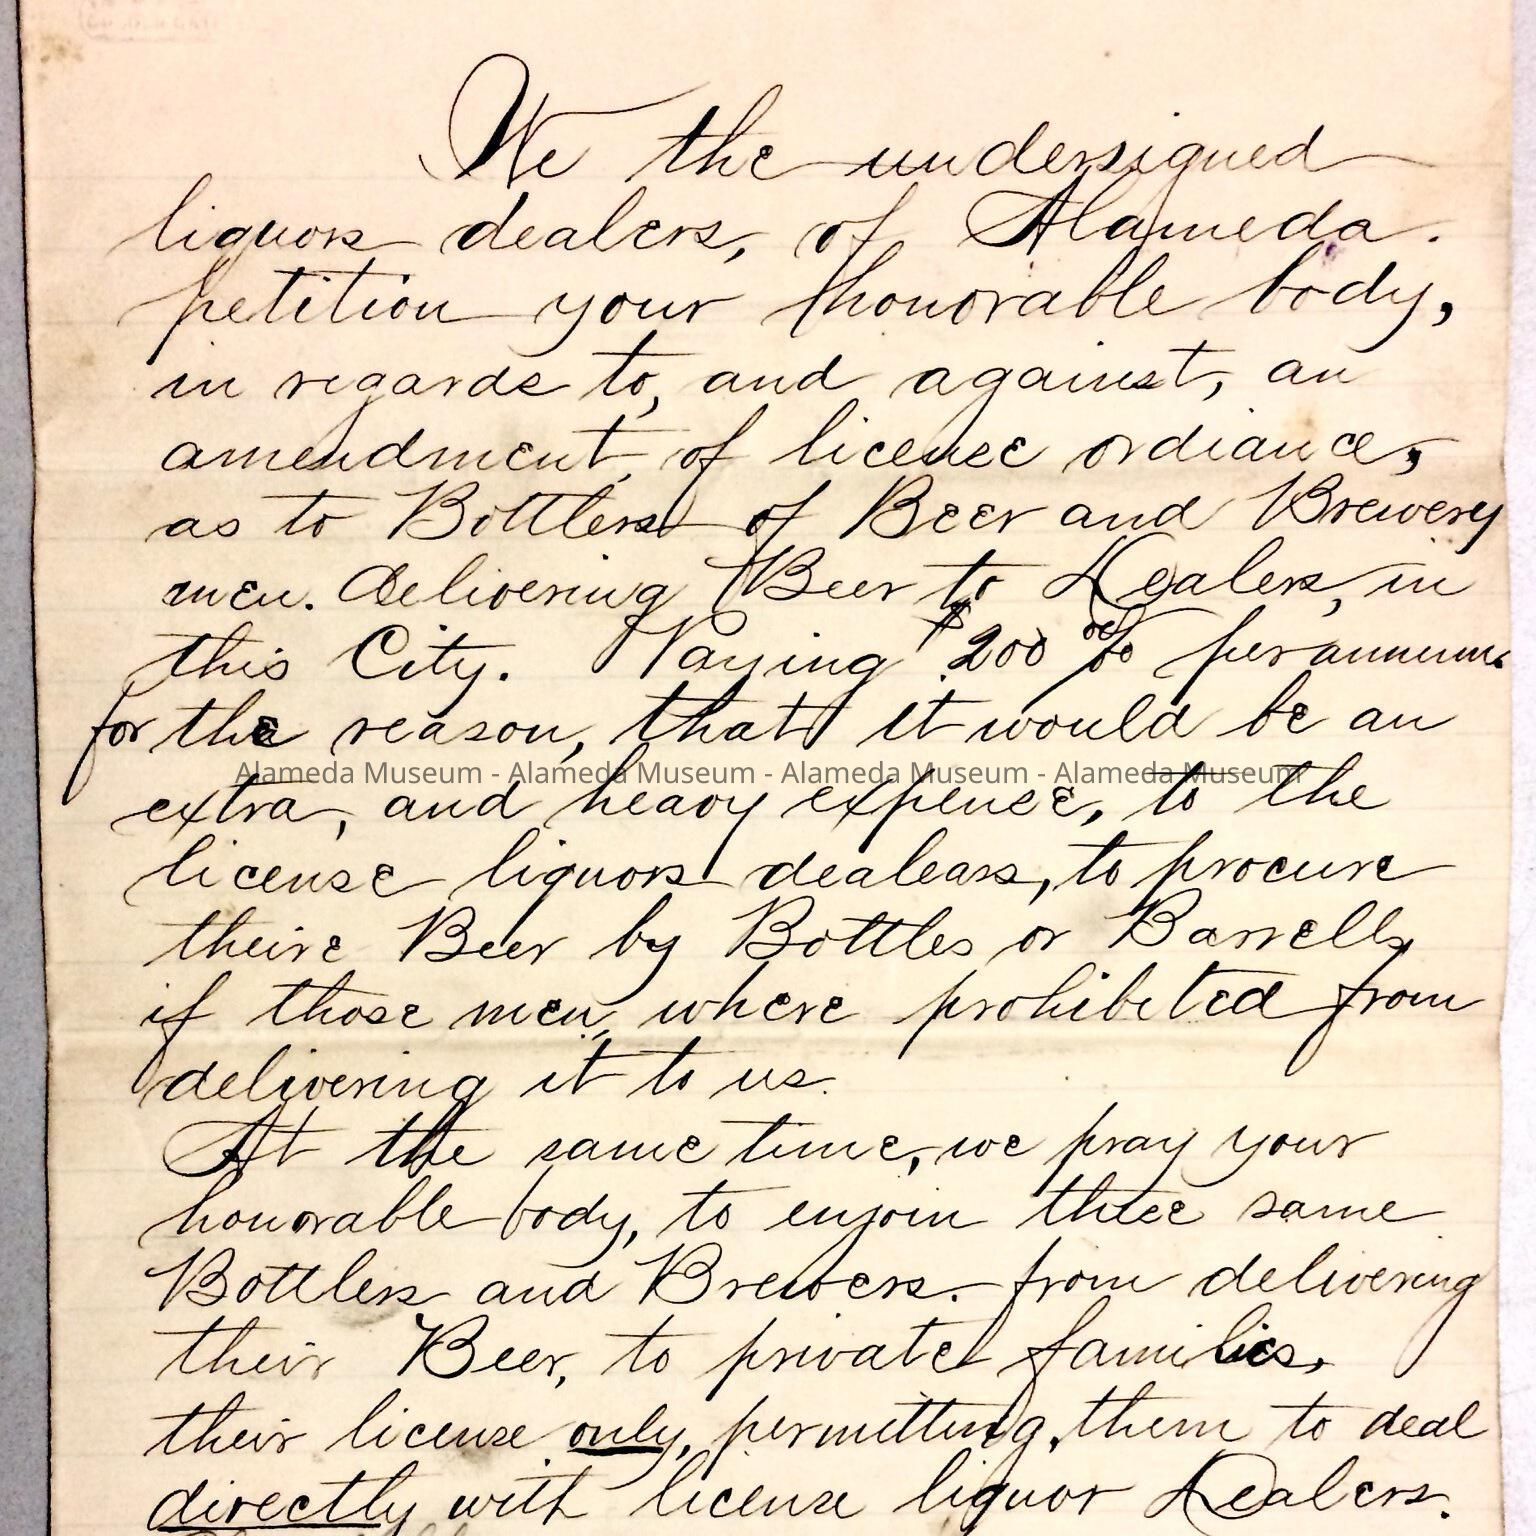 We the undersigned
liquors dealers, of Alameda.
petition your honorable body,
in regards to, and against, an
amendment, of license ordiance,
as to Bottlers of Beer and Brewery
men. delivering Beer to Dealers, in
this City. Paying $200 00/00 per annum.
for the reason, that it would be an
Alameda Museum - Alameda Museum - Alameda Museum - Alameda Museum
extra, and heavy expense, to the
license liquors dealears, to procure
theire Beer by Bottles or Barrells,
if those men, where prohibited from
delivering it to us.
At the same time, we pray your
honorable body, to enjoin these same
Bottlers and Brewers. from delivering
their Beer, to private families,
their license only, permitting, them to deal
directly with license liquor Dealers.